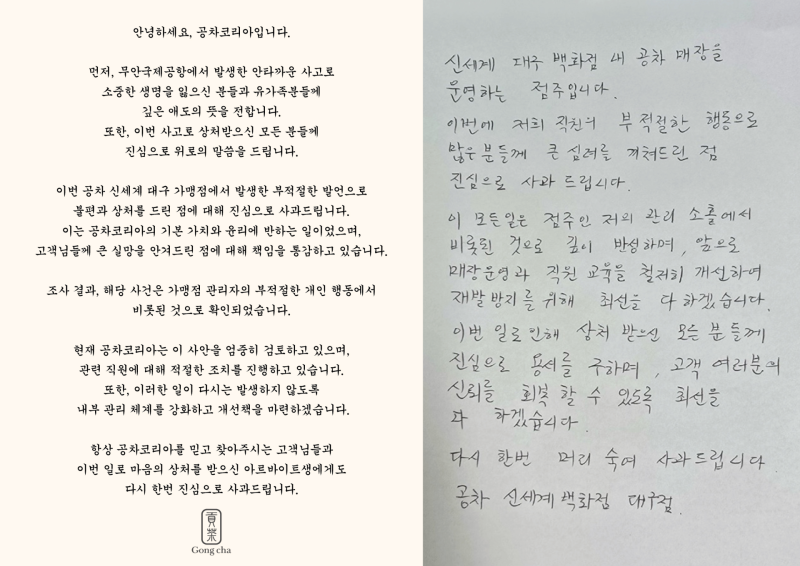 안녕하세요, 공차코리아입니다.
먼저, 무안국제공항에서 발생한 안타까운 사고로
소중한 생명을 잃으신 분들과 유가족분들께
깊은 애도의 뜻을 전합니다.
또한, 이번 사고로 상처받으신 모든 분들께
진심으로 위로의 말씀을 드립니다.
이번 공차 신세계 대구 가맹점에서 발생한 부적절한 발언으로
불편과 상처를 드린 점에 대해 진심으로 사과드립니다.
이는 공차코리아의 기본 가치와 윤리에 반하는 일이었으며,
고객님들께 큰 실망을 안겨드린 점에 대해 책임을 통감하고 있습니다.
조사 결과, 해당 사건은 가맹점 관리자의 부적절한 개인 행동에서
비롯된 것으로 확인되었습니다.
현재 공차코리아는 이 사안을 엄중히 검토하고 있으며,
관련 직원에 대해 적절한 조치를 진행하고 있습니다.
또한, 이러한 일이 다시는 발생하지 않도록
내부 관리 체계를 강화하고 개선책을 마련하겠습니다.
항상 공차코리아를 믿고 찾아주시는 고객님들과
이번 일로 마음의 상처를 받으신 아르바이트생에게도
다시 한번 진심으로 사과드립니다.
貢茶
Gong cha
신세계 대구 백화점 내 공차 매장을
운영하는 점주입니다.
이번에 저희 직원의 부적절한 행동으로
많은 분들께 큰 심려를 끼쳐드린 점
진심으로 사과 드립니다.
이 모든일은 점주인 저의 관리 소홀에서
비롯된 것으로 깊이 반성하며, 앞으로
매장운영과 직원 교육을 철저히 개선하여
재발방지를 위해 최선을 다하겠습니다.
이번 일로인해 상처 받으신 모든 분들께
진심으로 용서를 구하며, 고객 여러분의
신뢰를 회복 할 수 있도록 최선을
다 하겠습니다.
다시 한번 머리 숙여 사과드립니다
공차 신세계백화점 대구점.